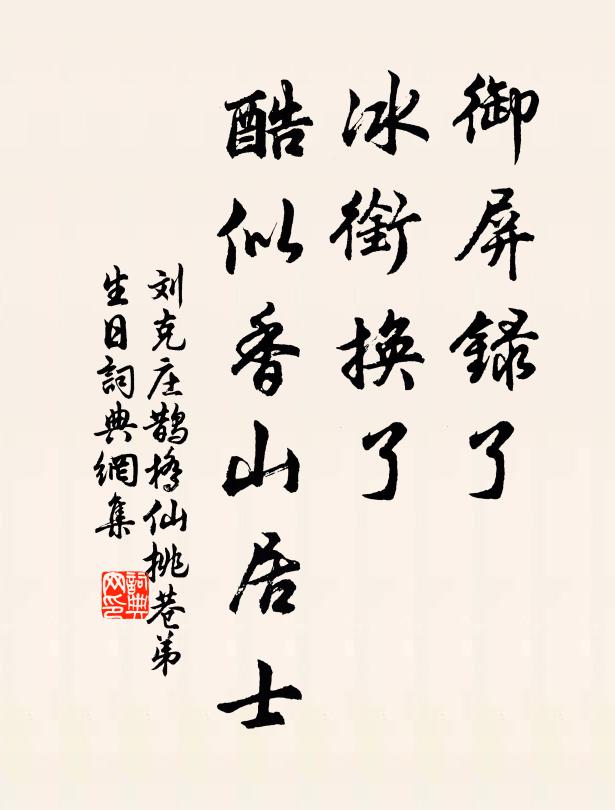 御屏録了
冰銜換了
酷似香山居士
刘克庄鹊橋仙桃巷弟
生日詞典網集
詞典网印